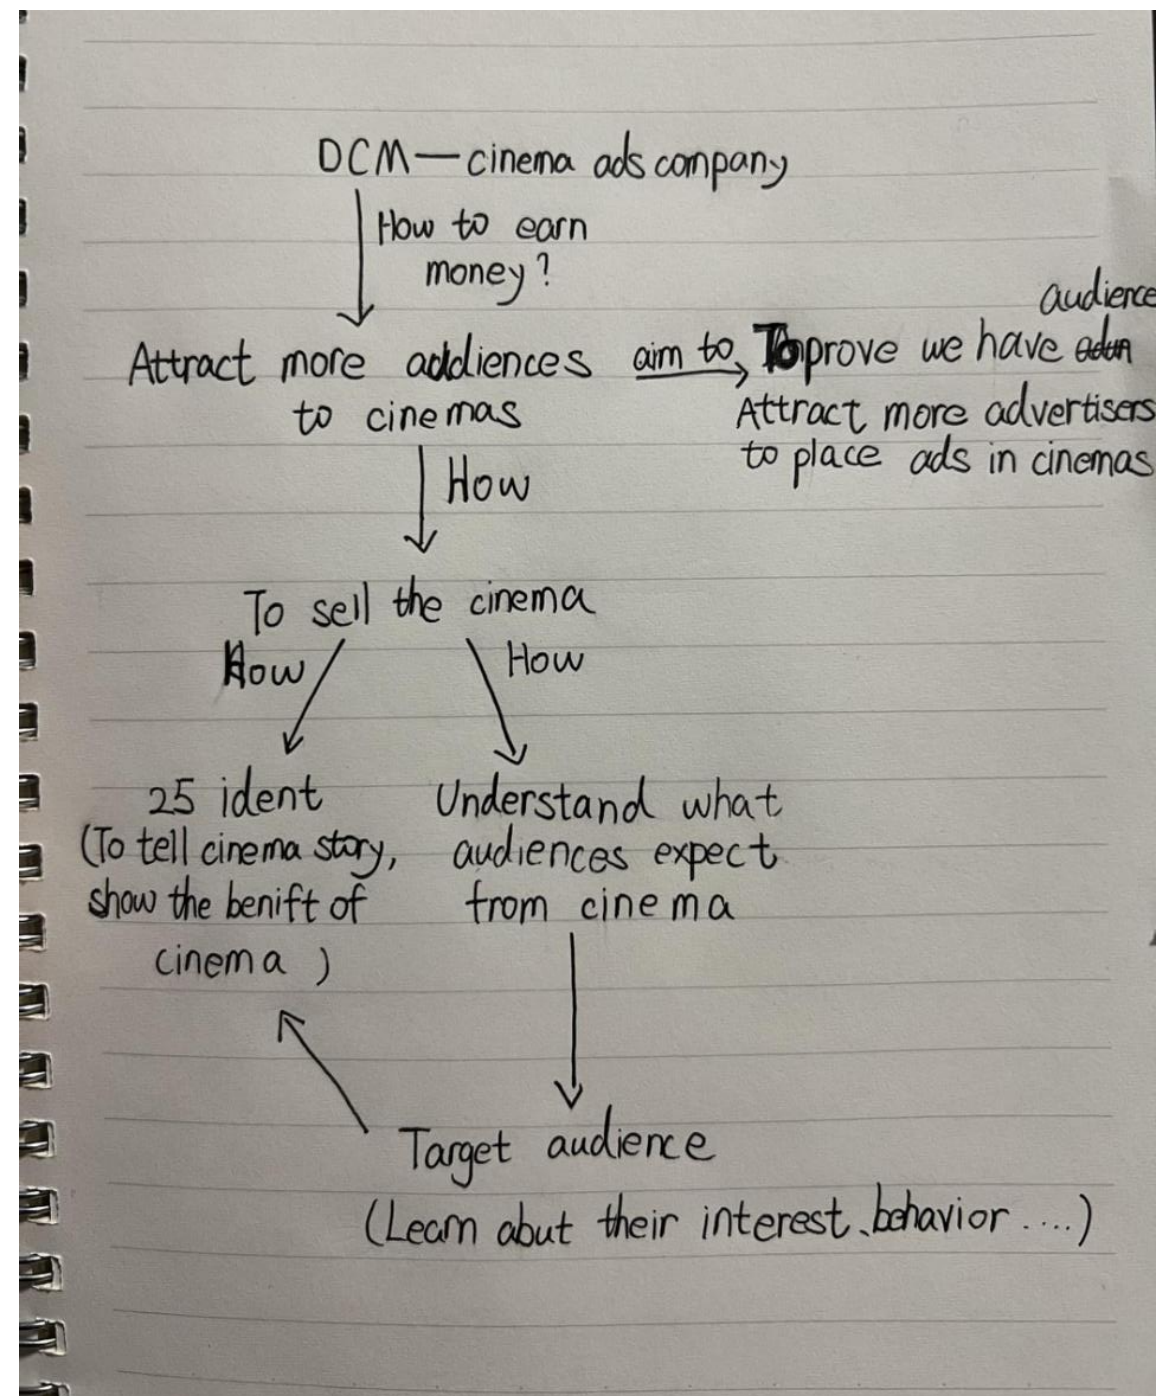 DCM — cinema ads company
How to earn
money?
audience
Attract more addiences aim to To prove we have
to cinemas
Attract more advertisers
to place ads in cinemas
How
To sell the cinema
How
How
25 ident
(To tell cinema story,
show the benift of
cinema )
Understand what
audiences expect
from cinema
Target audience
(Learn abut their interest、behavior ....)